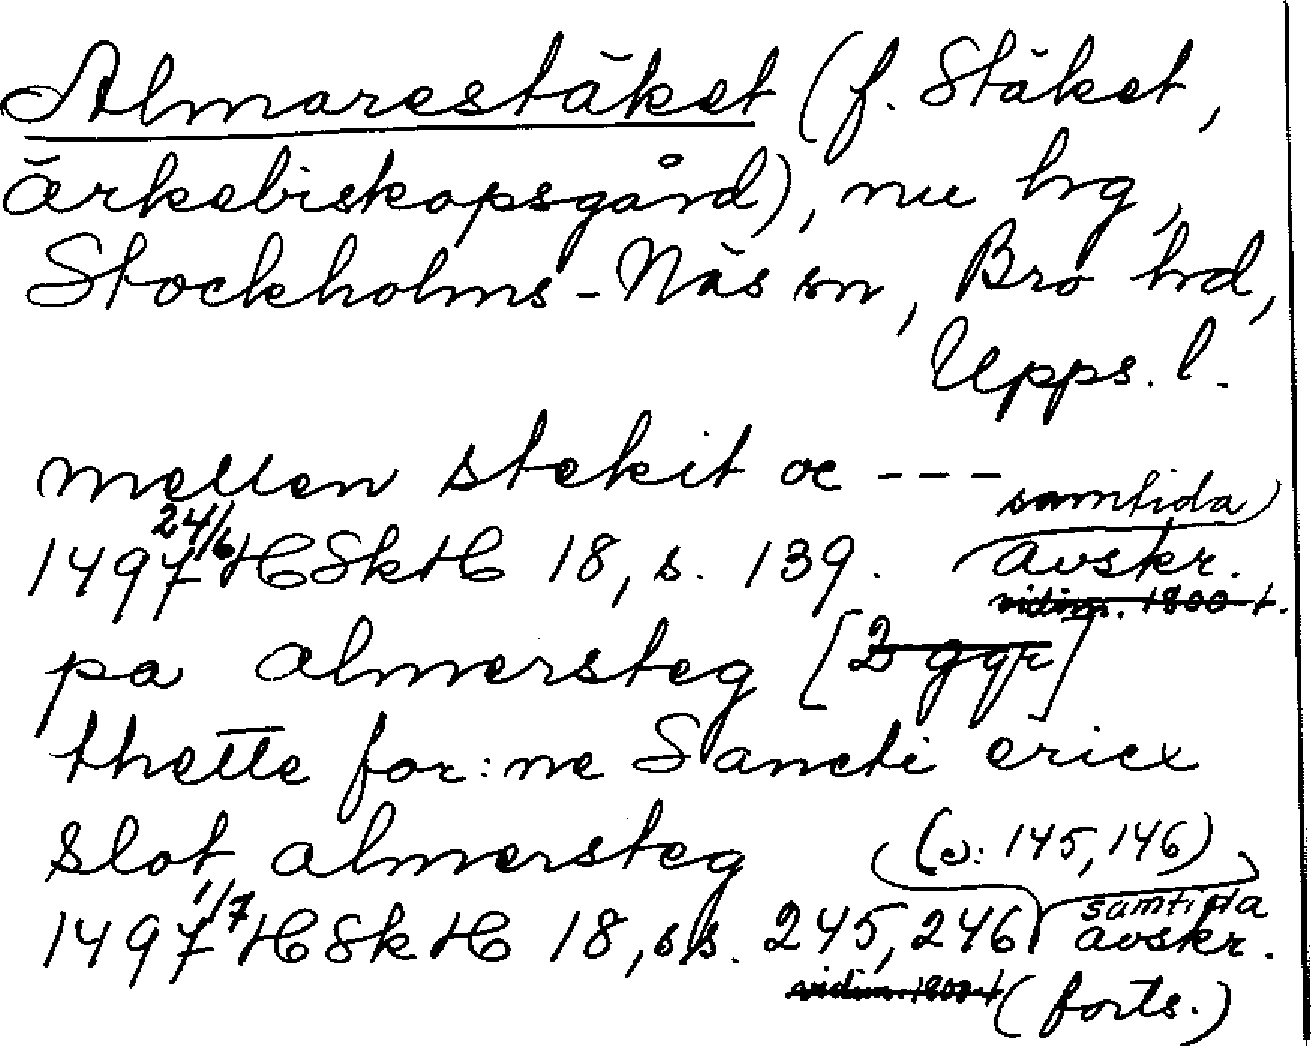 Almarestäket (f. Stäket,
ärkebiskopsgård), nu hrg,
Stockholms-Näs sn, Bro hrd,
Upps. l.
mellen stekit oc ---
samtida
1497 24/6 HSkH 18, s. 139. avskr.
vidim. 1800-t.
pa almersteg [2 ggr]
thette for:ne Sancti ericx
slot almersteg (ɔ: 145, 146)
1497 1/7 HSkH 18, ss. 245, 246 samtida avskr.
vidim. 1800-t (forts.)